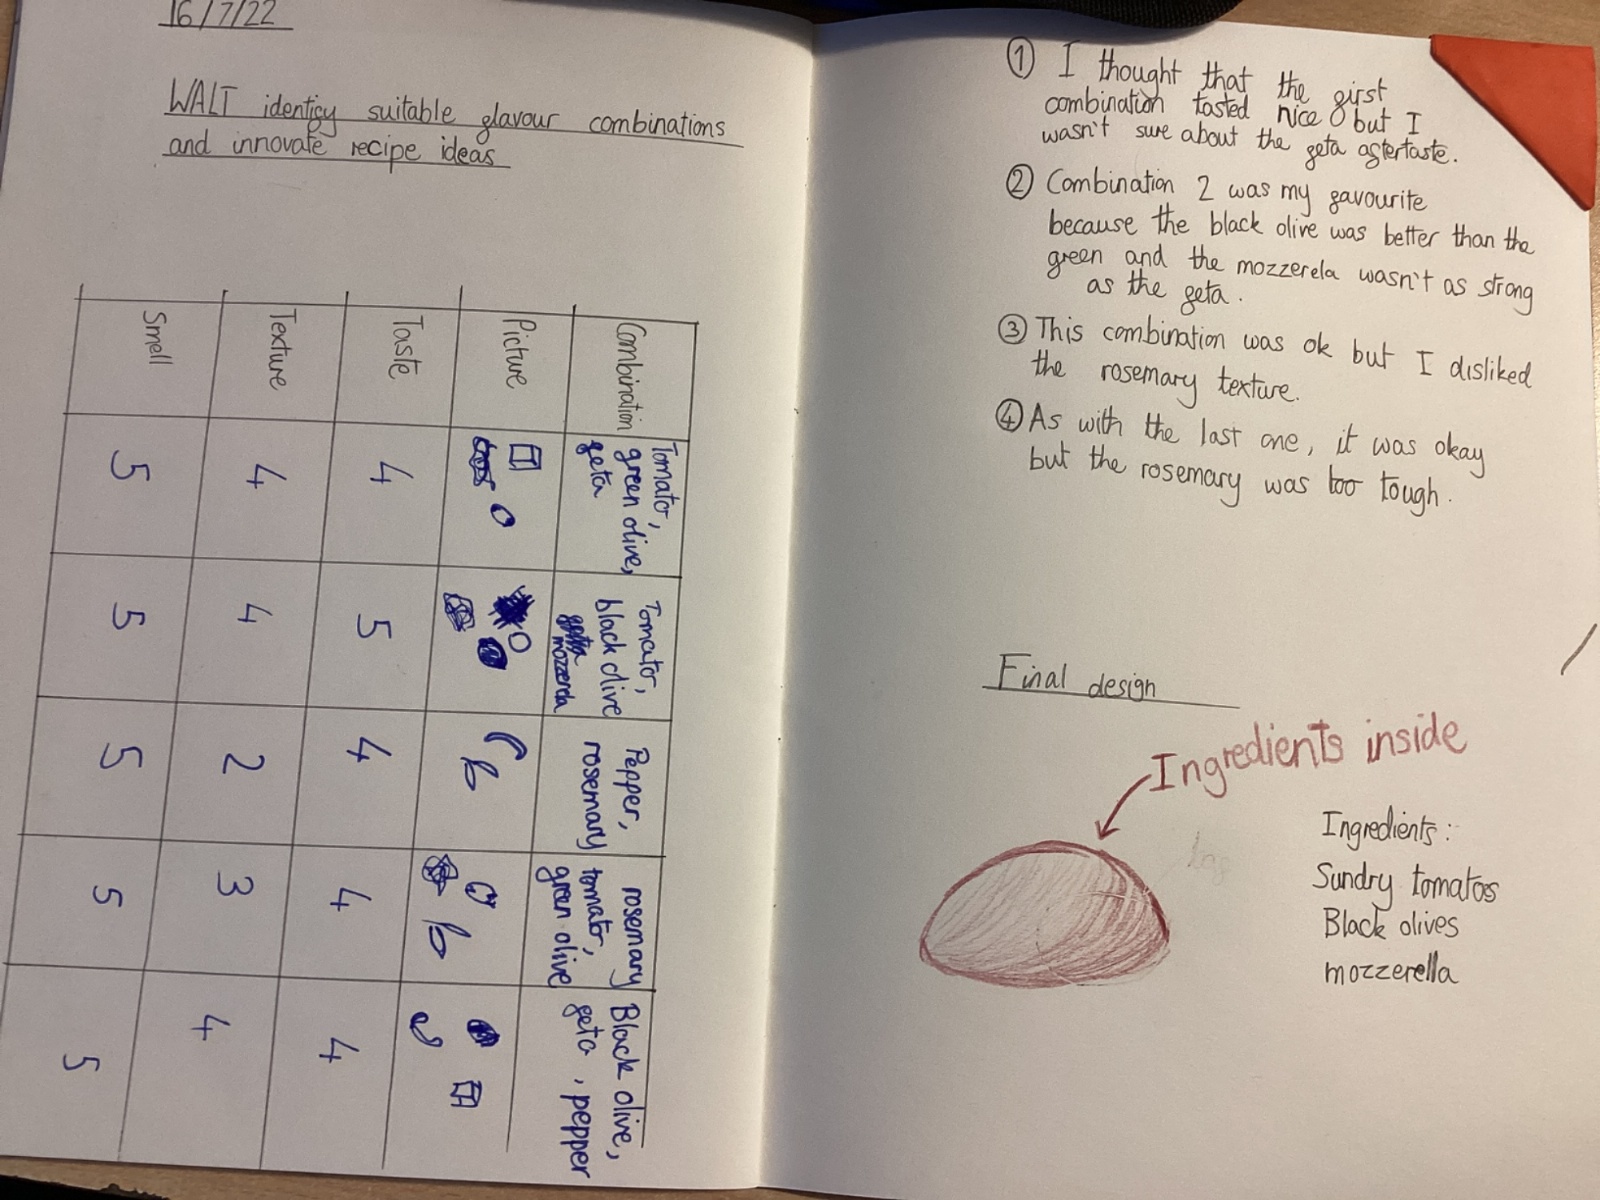 16/7/22
WALT identify suitable flavour combinations
and innovate recipe ideas
Combination
Picture
Taste
Texture
Smell
Tomato,
green olive,
feta
4
4
5
Tomator,
black olive
mozzerela
5
4
5
Pepper,
rosemary
4
2
5
rosemary
tomator,
green olive
4
3
5
Black olive,
feta, pepper
4
4
5
① I thought that the first
combination tasted nice but I
wasn't sure about the feta aftertaste.
② Combination 2 was my favourite
because the black olive was better than the
green and the mozzerela wasn't as strong
as the feta.
③ This combination was ok but I disliked
the rosemary texture.
④ As with the last one, it was okay
but the rosemary was too tough.
Final design
Ingredients inside
Ingredients:
Sundry tomatos
Black olives
mozzerella